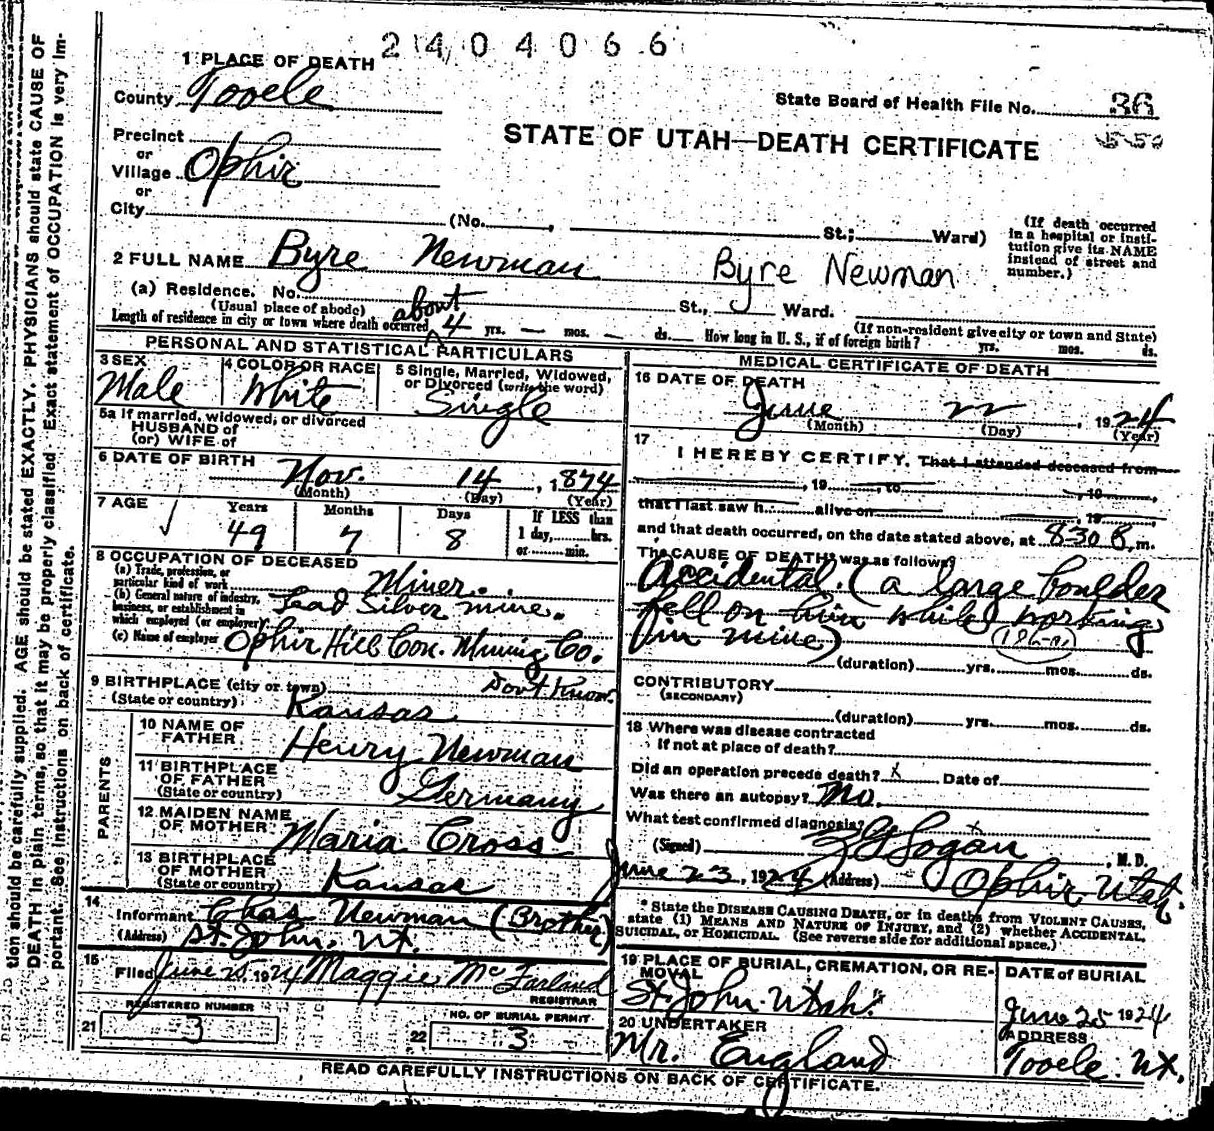 2404066
1 PLACE OF DEATH
County Tooele
State Board of Health File No. 36
Precinct
or
Village Ophir
or
City (No. , St.; Ward)
STATE OF UTAH—DEATH CERTIFICATE
(If death occurred
in a hospital or insti-
tution give its NAME
instead of street and
number.)
2 FULL NAME Byre Newman Byre Newman
(a) Residence. No. St., Ward.
(Usual place of abode) (If non-resident give city or town and State)
Length of residence in city or town where death occurred about 4 yrs. — mos. — ds. How long in U. S., if of foreign birth? yrs. mos. ds.
PERSONAL AND STATISTICAL PARTICULARS
3 SEX
Male
4 COLOR OR RACE
White
5 Single, Married, Widowed,
or Divorced (write the word)
Single
5a If married, widowed, or divorced
HUSBAND of
(or) WIFE of
6 DATE OF BIRTH
Nov. 14, 1874
(Month) (Day) (Year)
7 AGE Years Months Days If LESS than
1 day, hrs.
or min.
49 7 8
8 OCCUPATION OF DECEASED
(a) Trade, profession, or
particular kind of work Miner.
(b) General nature of industry,
business, or establishment in
which employed (or employer) Lead Silver mine.
(c) Name of employer Ophir Hill Con. Mining Co.
9 BIRTHPLACE (city or town) Don't Know.
(State or country) Kansas
PARENTS
10 NAME OF
FATHER Henry Newman
11 BIRTHPLACE
OF FATHER
(State or country) Germany
12 MAIDEN NAME
OF MOTHER Maria Cross
13 BIRTHPLACE
OF MOTHER
(State or country) Kansas
14
Informant Chas Newman (Brother)
(Address) St. John. Ut.
15
Filed June 25, 1924 Maggie McFarland
REGISTRAR
REGISTERED NUMBER
21 3
NO. OF BURIAL PERMIT
22 3
MEDICAL CERTIFICATE OF DEATH
16 DATE OF DEATH
June 22, 1924
(Month) (Day) (Year)
17
I HEREBY CERTIFY, That I attended deceased from
, 19 , to , 19
that I last saw h alive on , 19
and that death occurred, on the date stated above, at 8-30 m.
The CAUSE OF DEATH* was as follows:
Accidental. (a large boulder
fell on him while working
in mine)
(duration) yrs. mos. ds.
CONTRIBUTORY
(SECONDARY)
(duration) yrs. mos. ds.
18 Where was disease contracted
If not at place of death?
Did an operation precede death? x Date of
Was there an autopsy? No.
What test confirmed diagnosis? x
(Signed) Logan, M. D.
June 23, 1924 (Address) Ophir, Utah.
* State the DISEASE CAUSING DEATH, or in deaths from VIOLENT CAUSES,
state (1) MEANS AND NATURE OF INJURY, and (2) whether ACCIDENTAL,
SUICIDAL, or HOMICIDAL. (See reverse side for additional space.)
19 PLACE OF BURIAL, CREMATION, OR RE-
MOVAL
St. John. Utah.
DATE of BURIAL
June 25 1924
20 UNDERTAKER
Mr. England
ADDRESS
Tooele. Ut.
READ CAREFULLY INSTRUCTIONS ON BACK OF CERTIFICATE.
tion should be carefully supplied. AGE should be stated EXACTLY. PHYSICIANS should state CAUSE OF
DEATH in plain terms, so that it may be properly classified. Exact statement of OCCUPATION is very im-
portant. See instructions on back of certificate.